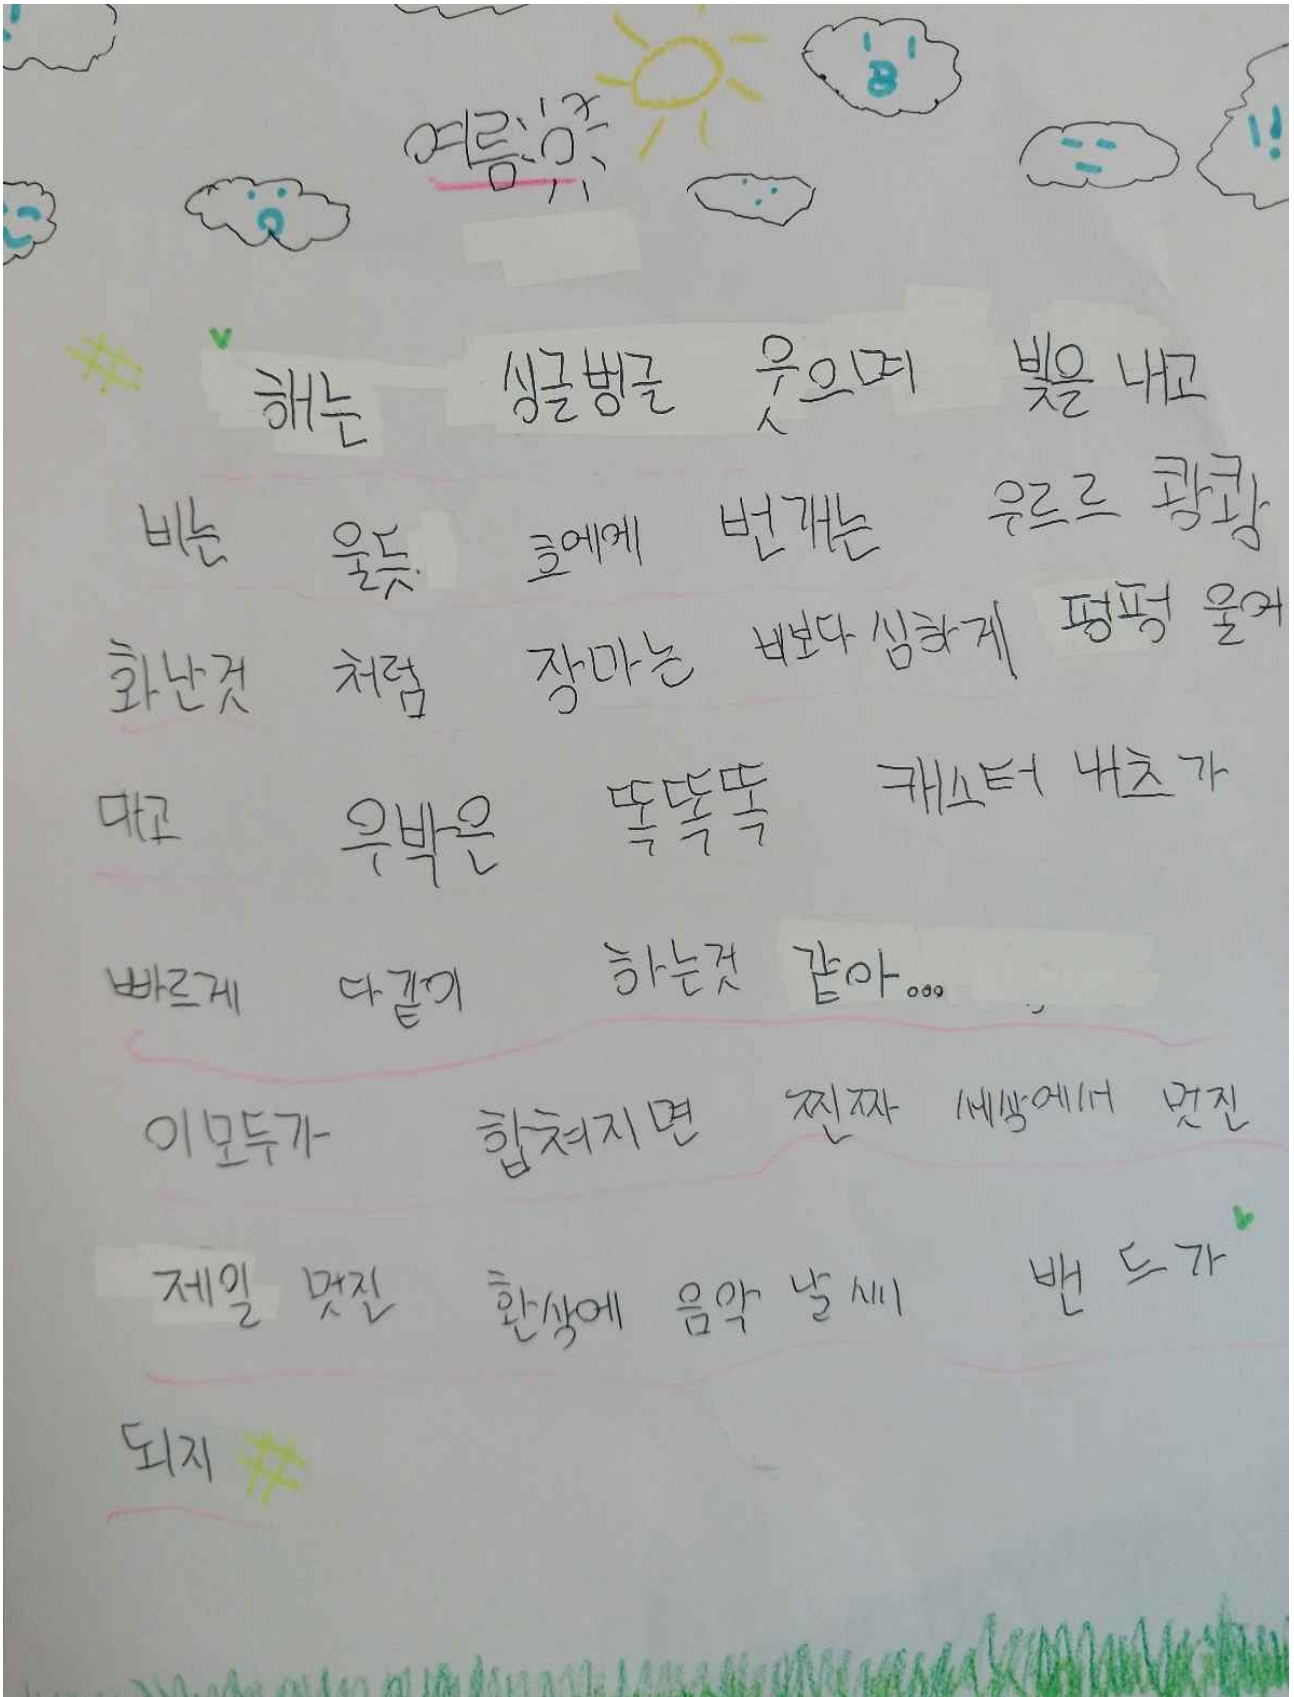 여름
해는 싱글벙글 웃으며 빛을 내고
비는 울듯 흐에에 번개는 우르르 쾅쾅
화난것 처럼 장마는 비보다 심하게 펑펑 울어
대고 우박은 똑똑똑 캐스터 내츠가
빠르게 다같이 하는것 같아...
이모두가 합쳐지면 찐짜 세상에서 멋진
제일 멋진 환상에 음악 날씨 밴드가
되지